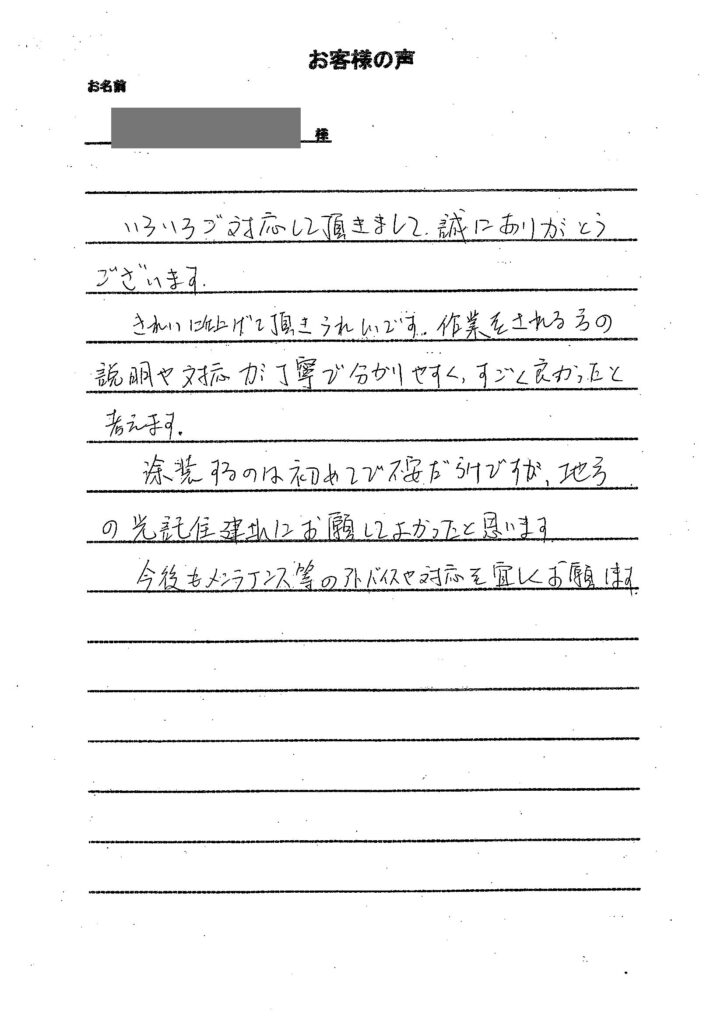 お客様の声
お名前
様
いろいろご対応して頂きまして、誠にありがとう
ございます。
きれいに仕上げて頂きうれしいです。作業をされる方の
説明や対応が丁寧で分かりやすく、すごく良かったと
考えます。
塗装するのは初めてで不安だらけですが、地元
の 住建 にお願してよかったと思います
今後もメンテナンス等のアドバイスや対応を宜しくお願します。